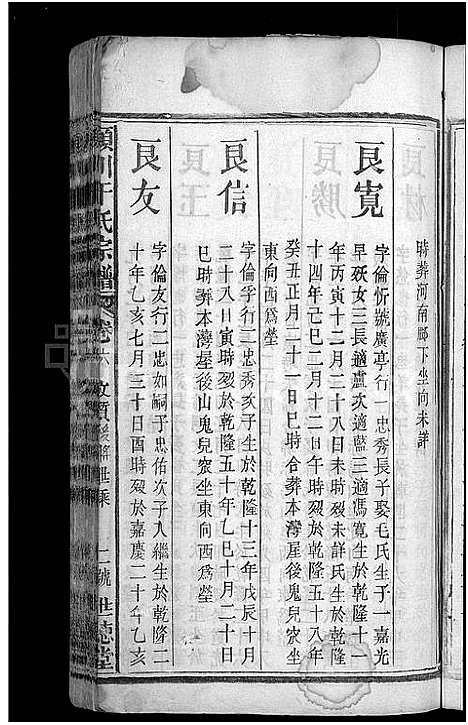 時葬河南鄉下坐向未詳
良寬
字倫忻號廣亭行一忠秀長子娶毛氏生子一嘉光
早殀女三長適盧次適盧三適馮寬生於乾隆十一
年丙寅十二月二十八日未時歿未詳氏生於乾隆
十四年己巳二月十二日午時歿於乾隆五十八年
癸丑正月二十一日巳時合葬本灣屋後鬼兒窊坐
東向西爲塋
良信
字倫孚行二忠秀次子生於乾隆十三年戊辰十月
二十八日寅時歿於乾隆五十年乙巳十月二十日
巳時葬本灣屋後山鬼兒窊坐東向西爲塋
良友
字倫友行二忠如嗣子忠佑次子入繼生於乾隆二
十年乙亥七月三十日酉時歿於嘉慶二十年乙亥
氏宗譜 卷六 世系 二號 世德堂